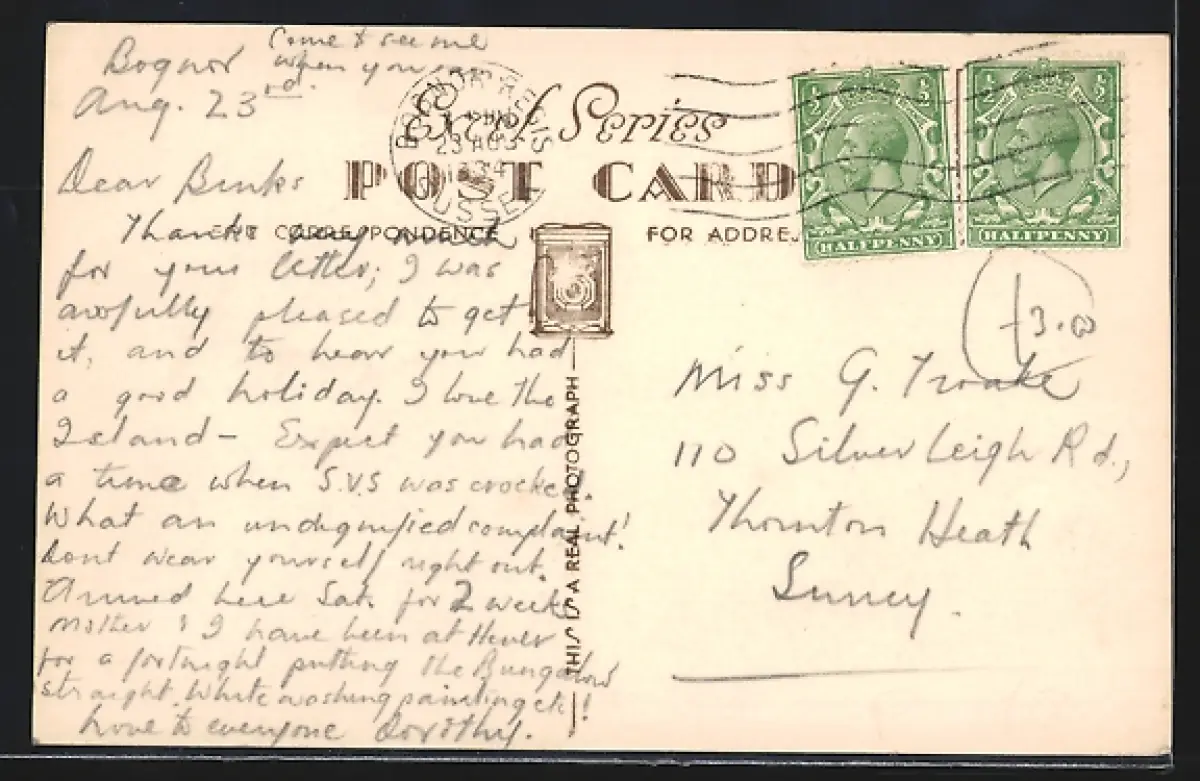 Come & see me
when you can
Bognor
Aug. 23rd.
Dear Binks
Thanks very much
for your letter; I was
awfully pleased to get
it, and to hear you had
a good holiday. I love the
Island – Expect you had
a time when S.V.S was crocked.
What an undignified complaint!
Dont wear yourself right out.
Arrived here Sat. for 2 weeks
Mother & I have been at Hever
for a fortnight putting the Bungalow
straight, White washing painting etc!
Love to everyone Dorothy.
BOGNOR REGIS
23 AUG
1934
SUSSEX
Excel Series
POST CARD
FOR CORRESPONDENCE
FOR ADDRE
THIS IS A REAL PHOTOGRAPH
HALFPENNY
HALFPENNY
£3.00
Miss G. Troake
110 Silver Leigh Rd.,
Thornton Heath
Surrey.